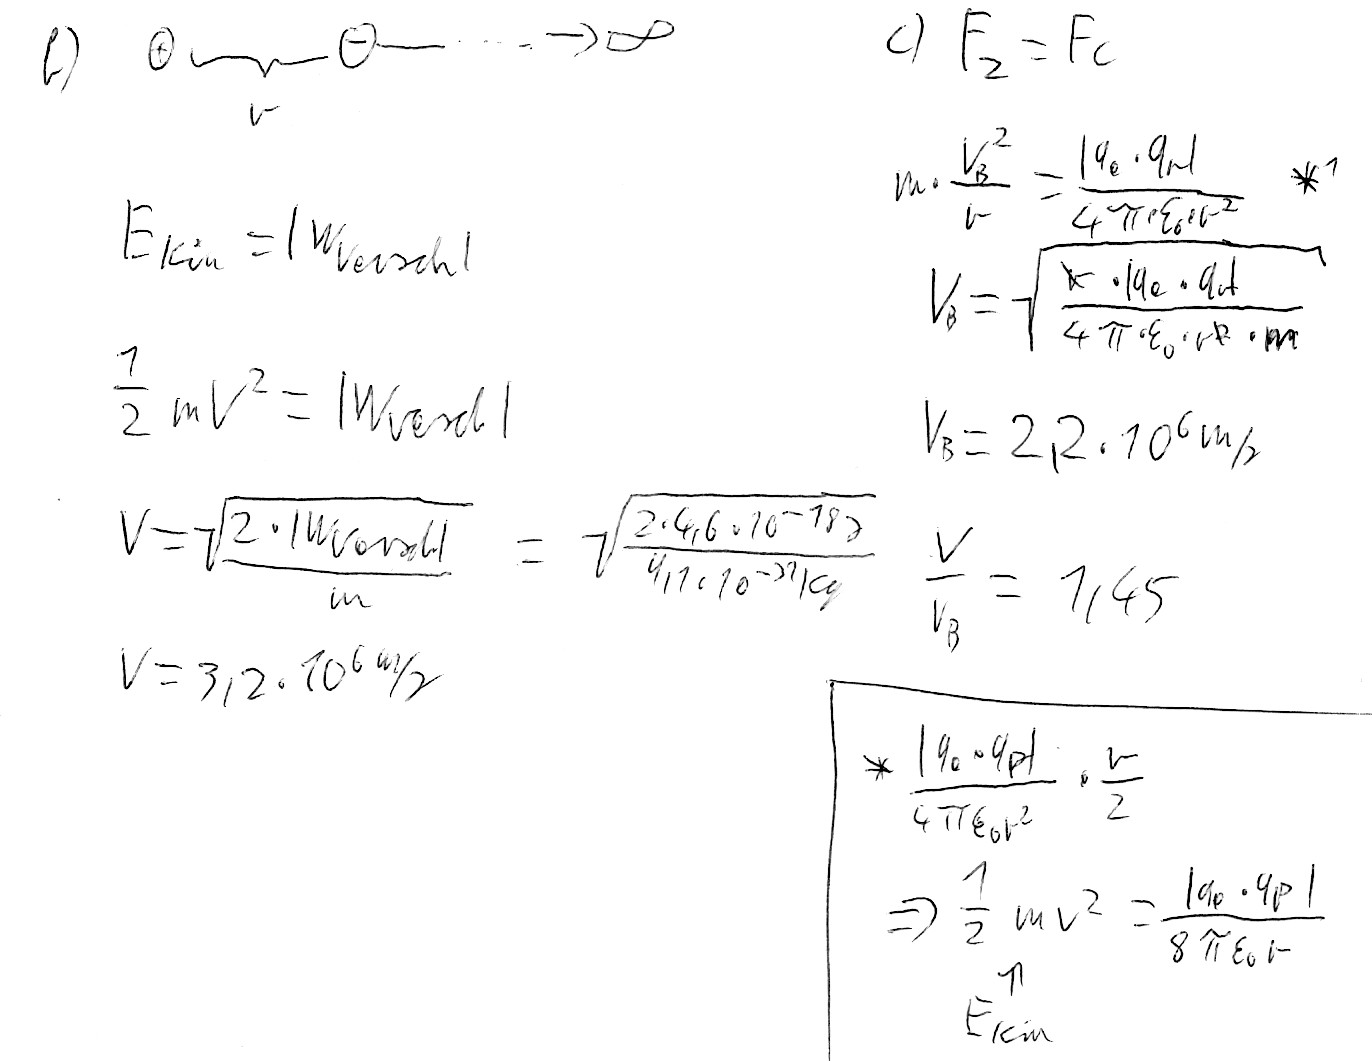 b) ⊕ ⊖ ⋯ → ∞
r
E_kin = |W_Versch|
1/2 mV² = |W_Versch|
V = √(2·|W_Versch| / m) = √(2·4,6·10⁻¹⁸J / 9,1·10⁻³¹kg)
V = 3,2·10⁶ m/s
c) F_Z = F_C
m· V_B²/r = |q_e·q_p| / 4π·ε₀·r² *¹
V_B = √(r·|q_e·q_p| / 4π·ε₀·r²·m)
V_B = 2,2·10⁶ m/s
V/V_B = 1,45
* |q_e·q_p| / 4πε₀r² · r/2
⇒ 1/2 mv² = |q_e·q_p| / 8πε₀r
↑
E_kin